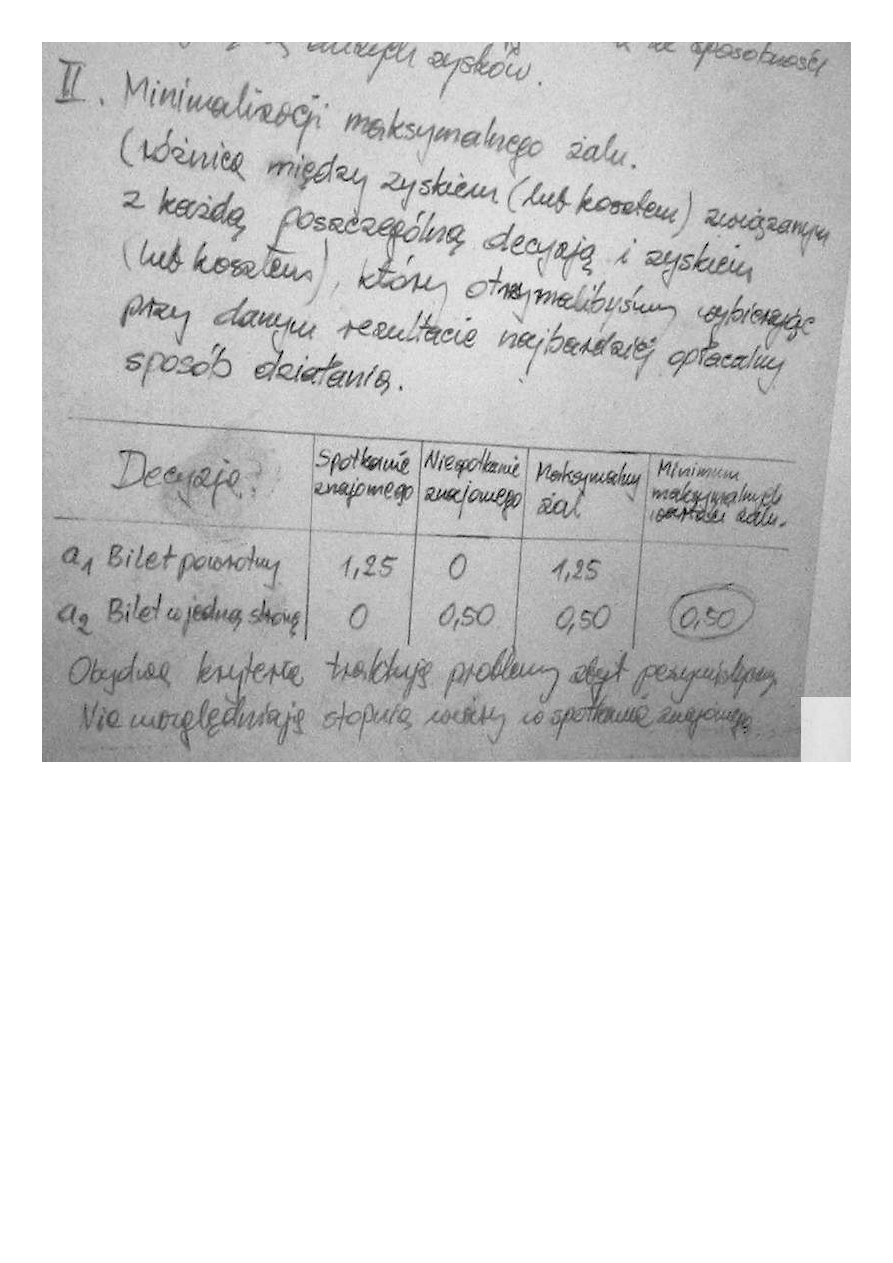 dużych zysków. sposobności
II. Minimalizacji maksymalnego żalu.
(różnica między zyskiem (lub kosztem) związanym
z każdą poszczególną decyzją i zyskiem
(lub kosztem), który otrzymalibyśmy wybierając
przy danym rezultacie najbardziej opłacalny
sposób działania.
Decyzja: Spotkanie znajomego Niespotkanie znajomego Maksymalny żal Minimum maksymalnych wartości żalu.
a1 Bilet powrotny 1,25 0 1,25
a2 Bilet w jedną stronę 0 0,50 0,50 0,50
Obydwa kryteria traktują problemy zbyt pesymistyczny
Nie uwzględniają stopnia wiary w spotkanie znajomego.